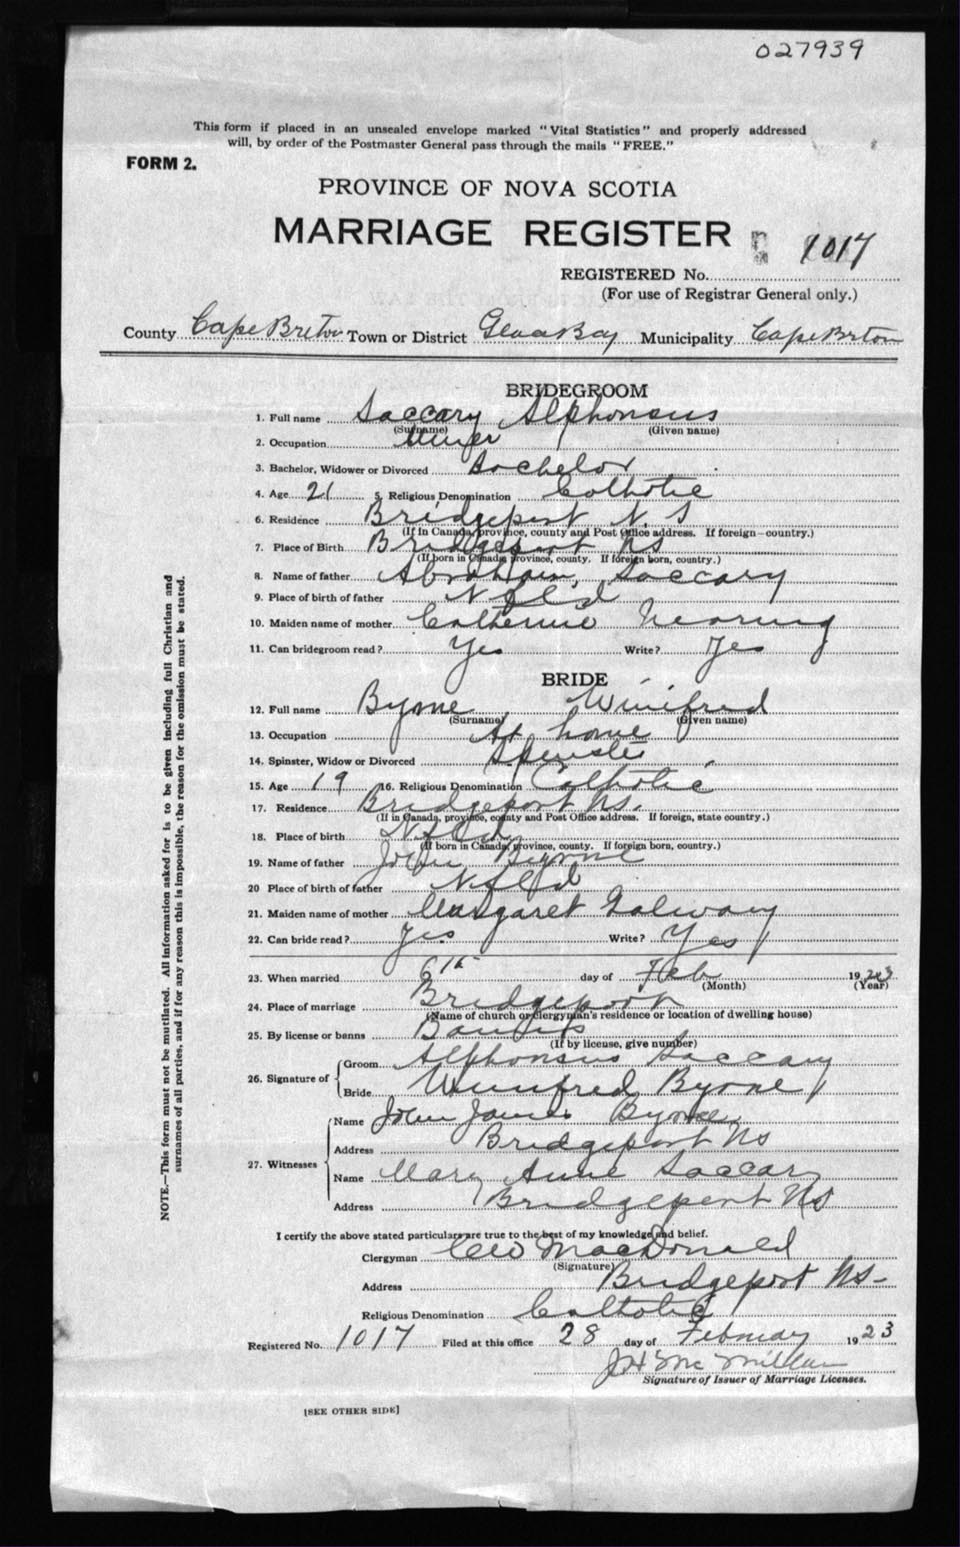 027939
This form if placed in an unsealed envelope marked "Vital Statistics" and properly addressed
will, by order of the Postmaster General pass through the mails "FREE."
FORM 2.
PROVINCE OF NOVA SCOTIA
MARRIAGE REGISTER
1017
REGISTERED No.
(For use of Registrar General only.)
County Cape Breton Town or District Glace Bay Municipality Cape Breton
BRIDEGROOM
1. Full name Saccary Alphonsus
(Surname) (Given name)
2. Occupation Miner
3. Bachelor, Widower or Divorced Bachelor
4. Age 21 5. Religious Denomination Catholic
6. Residence Bridgeport N.S
(If in Canada, province, county and Post Office address. If foreign—country.)
7. Place of Birth Bridgeport NS
(If born in Canada province, county. If foreign born, country.)
8. Name of father Abraham Saccary
9. Place of birth of father Nfld
10. Maiden name of mother Catherine Nearing
11. Can bridegroom read? Yes Write? Yes
BRIDE
12. Full name Byrne Winifred
(Surname) (Given name)
13. Occupation At home
14. Spinster, Widow or Divorced Spinster
15. Age 19 16. Religious Denomination Catholic
17. Residence Bridgeport NS.
(If in Canada, province, county and Post Office address. If foreign, state country.)
18. Place of birth Nfld
(If born in Canada, province, county. If foreign born, country.)
19. Name of father John Byrne
20 Place of birth of father Nfld
21. Maiden name of mother Margaret Galway
22. Can bride read? Yes Write? Yes
23. When married 6th day of Feb 1923
(Month) (Year)
24. Place of marriage Bridgeport
(Name of church or clergyman's residence or location of dwelling house)
25. By license or banns Banns
(If by license, give number)
26. Signature of Groom Alphonsus Saccary
Bride Winifred Byrne
27. Witnesses Name John James Byrne
Address Bridgeport NS
Name Mary Anne Saccary
Address Bridgeport NS
I certify the above stated particulars are true to the best of my knowledge and belief.
Clergyman MacDonald
(Signature)
Address Bridgeport NS-
Religious Denomination Catholic
Registered No. 1017 Filed at this office 28 day of February 1923
JH McMillan
Signature of Issuer of Marriage Licenses.
[SEE OTHER SIDE]
NOTE.—This form must not be mutilated. All information asked for is to be given including full Christian and
surnames of all parties, and if for any reason this is impossible, the reason for the omission must be stated.